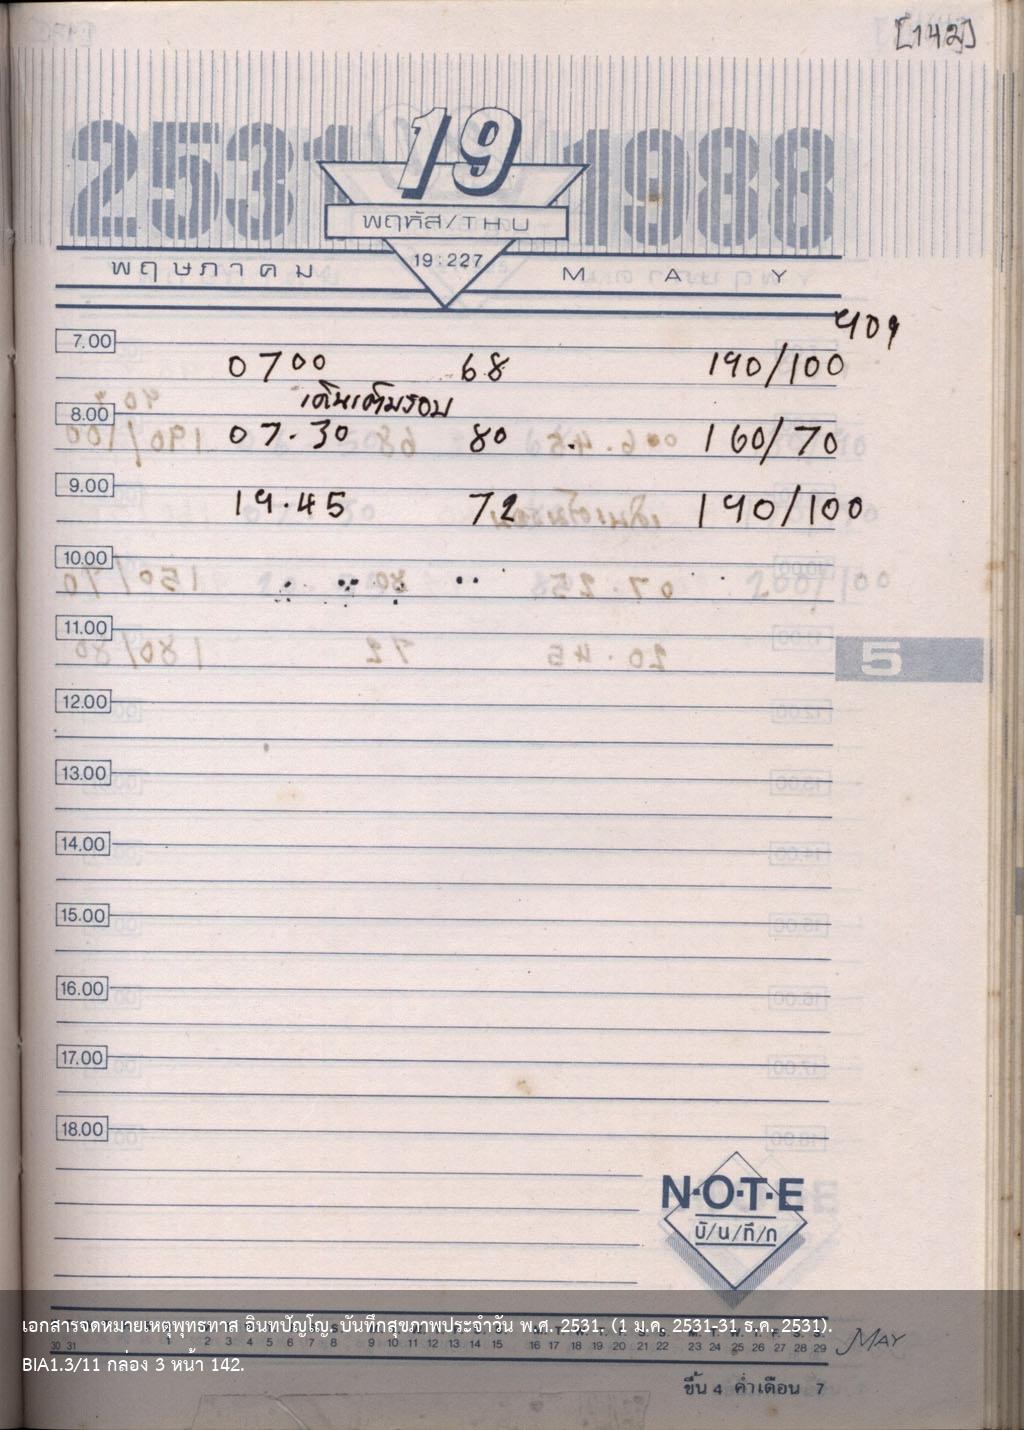 [142]
2531 19 1988
พฤหัส/THU
19:227
พฤษภาคม MAY
7.00
0700 68 190/100
เดินเต็มรอบ
8.00
07.30 80 160/70
9.00
19.45 72 190/100
10.00
11.00
5
12.00
13.00
14.00
15.00
16.00
17.00
18.00
N·O·T·E
บั/น/ทึ/ก
เอกสารจดหมายเหตุพุทธทาส อินทปัญโญ. บันทึกสุขภาพประจำวัน พ.ศ. 2531. (1 ม.ค. 2531-31 ธ.ค. 2531).
30 31 1 2 3 4 5 6 7 8 9 10 11 12 13 14 15 16 17 18 19 20 21 22 23 24 25 26 27 28 29
MAY
BIA1.3/11 กล่อง 3 หน้า 142.
ขึ้น 4 ค่ำเดือน 7